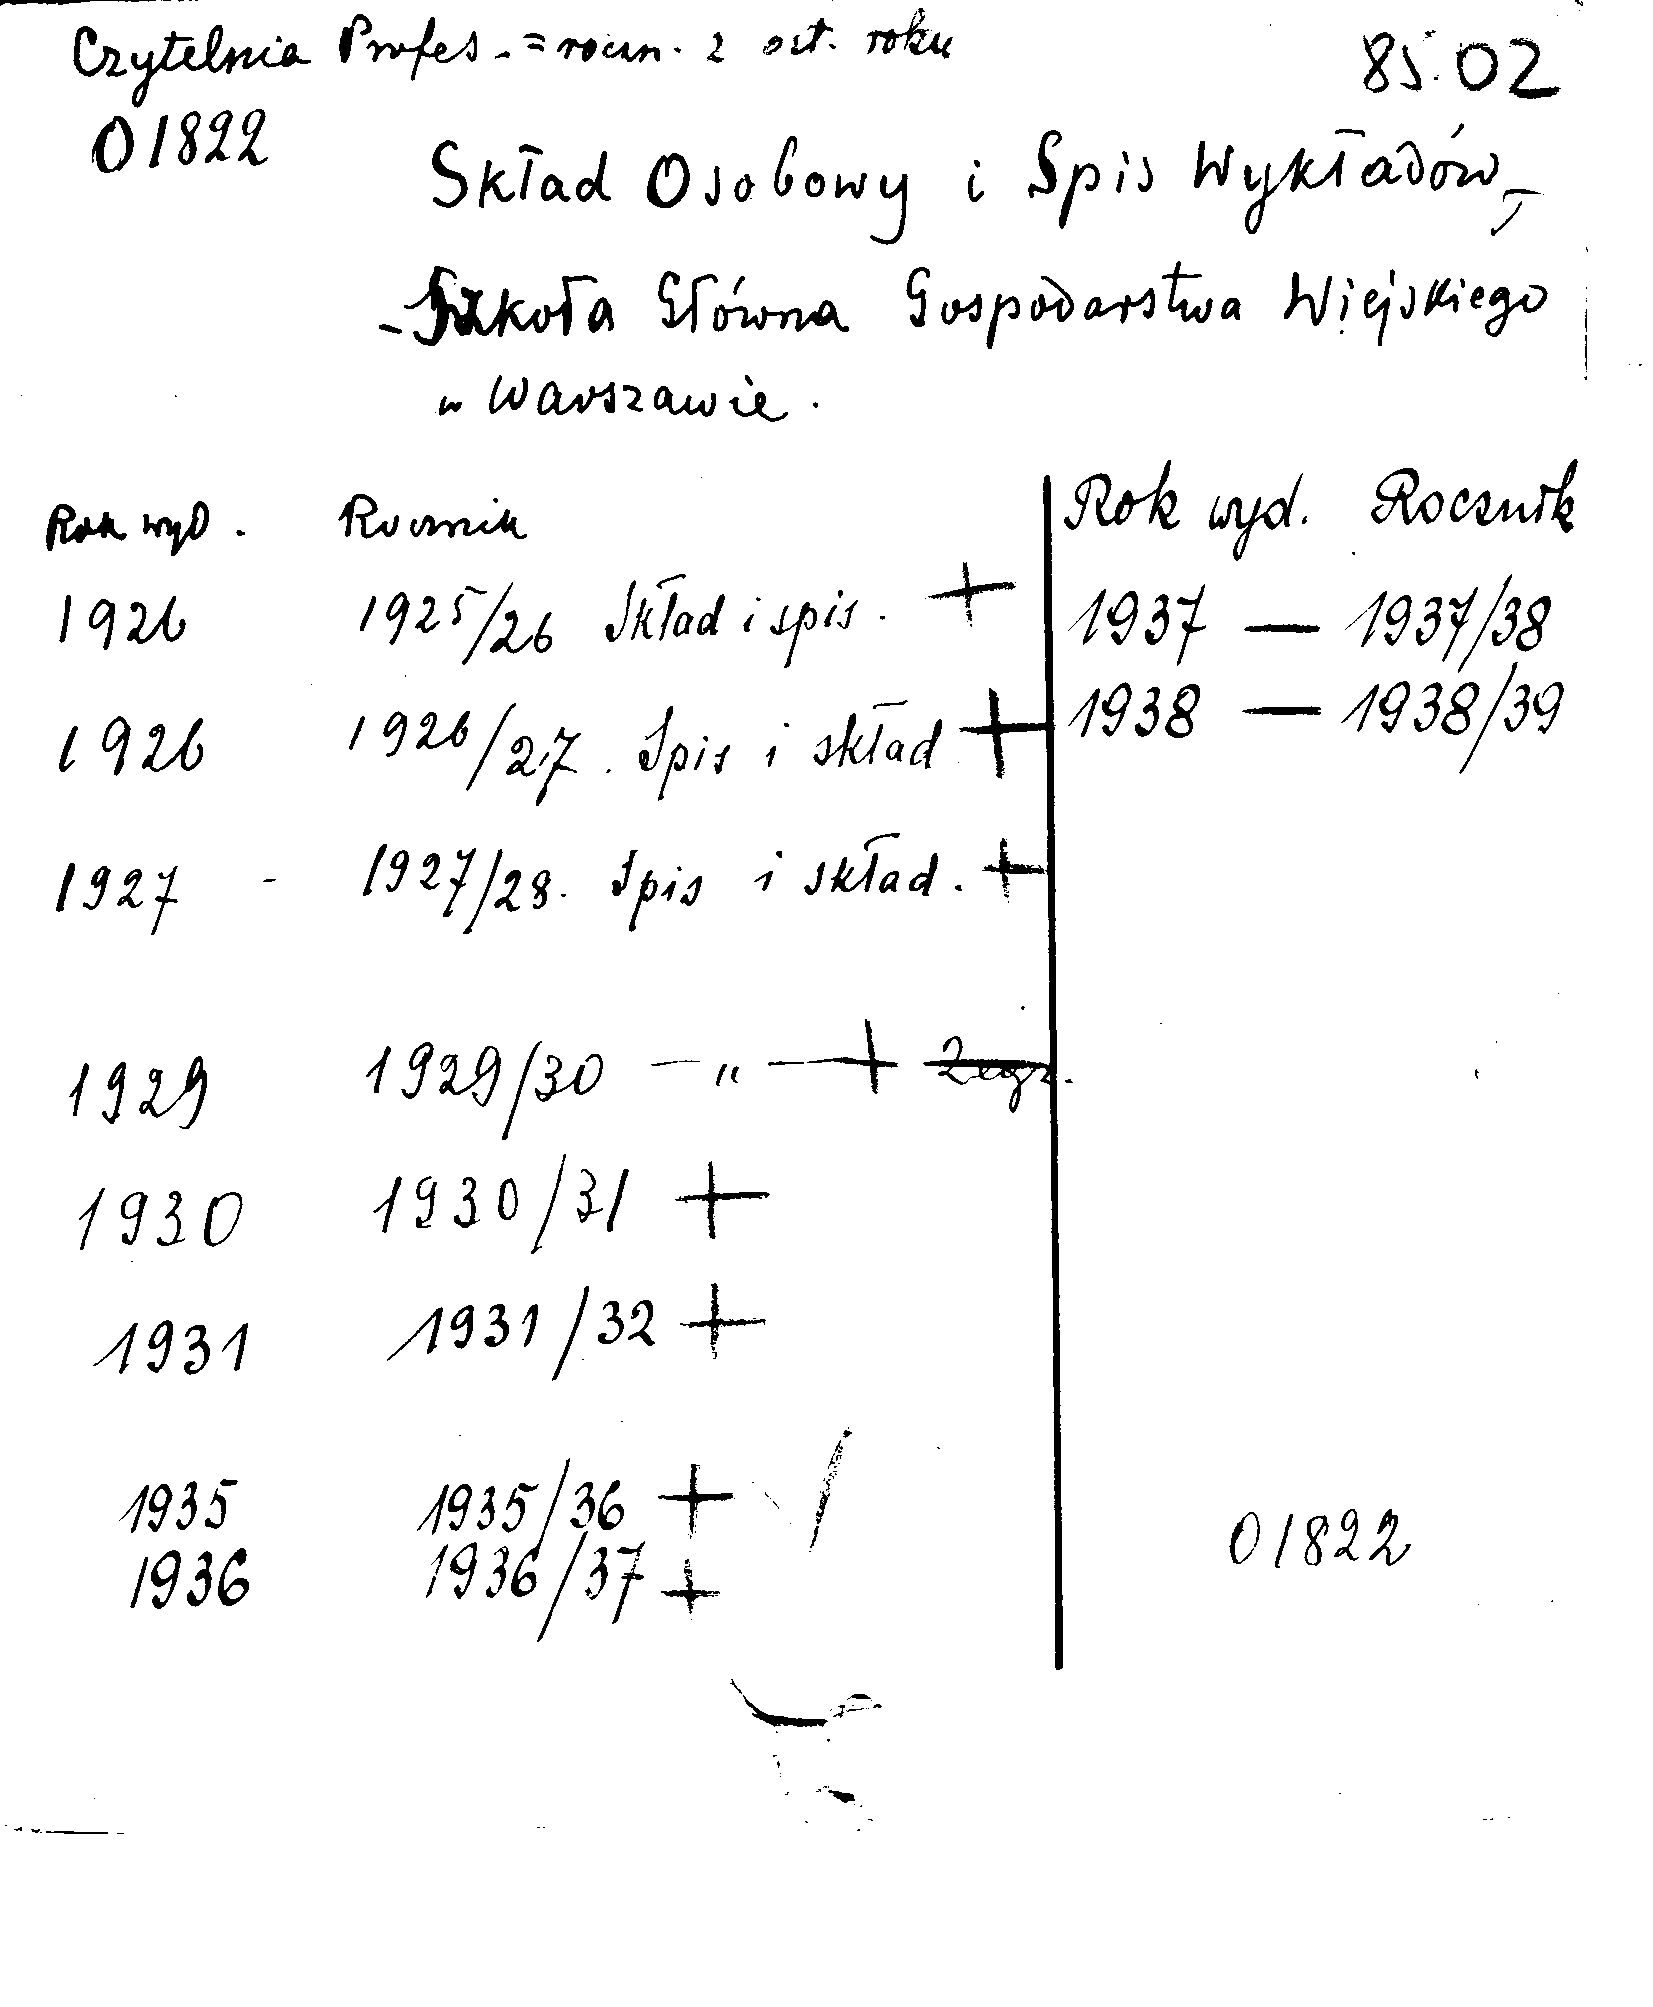 Czytelnia Profes. = roczn. z ost. roku
85.02
01822
Skład Osobowy i Spis Wykładów,
- Szkoła Główna Gospodarstwa Wiejskiego
w Warszawie.
Rok wyd. Rocznik
1926 1925/26 Skład i spis. +
1926 1926/27. Spis i skład +
1927 - 1927/28. Spis i skład. +
1929 1929/30 — „ — +
1930 1930/31 +
1931 1931/32 +
1935 1935/36 +
1936 1936/37 +
Rok wyd. Rocznik
1937 — 1937/38
1938 — 1938/39
01822